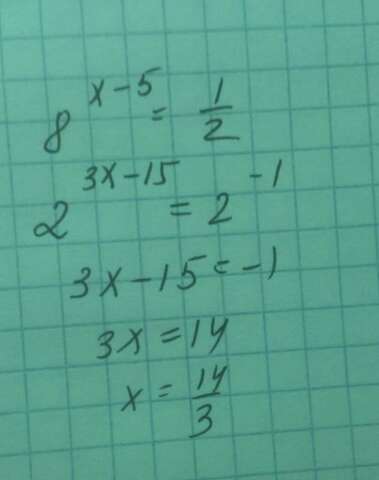 8^{x-5} = \frac{1}{2}
2^{3x-15} = 2^{-1}
3x-15 = -1
3x = 14
x = \frac{14}{3}